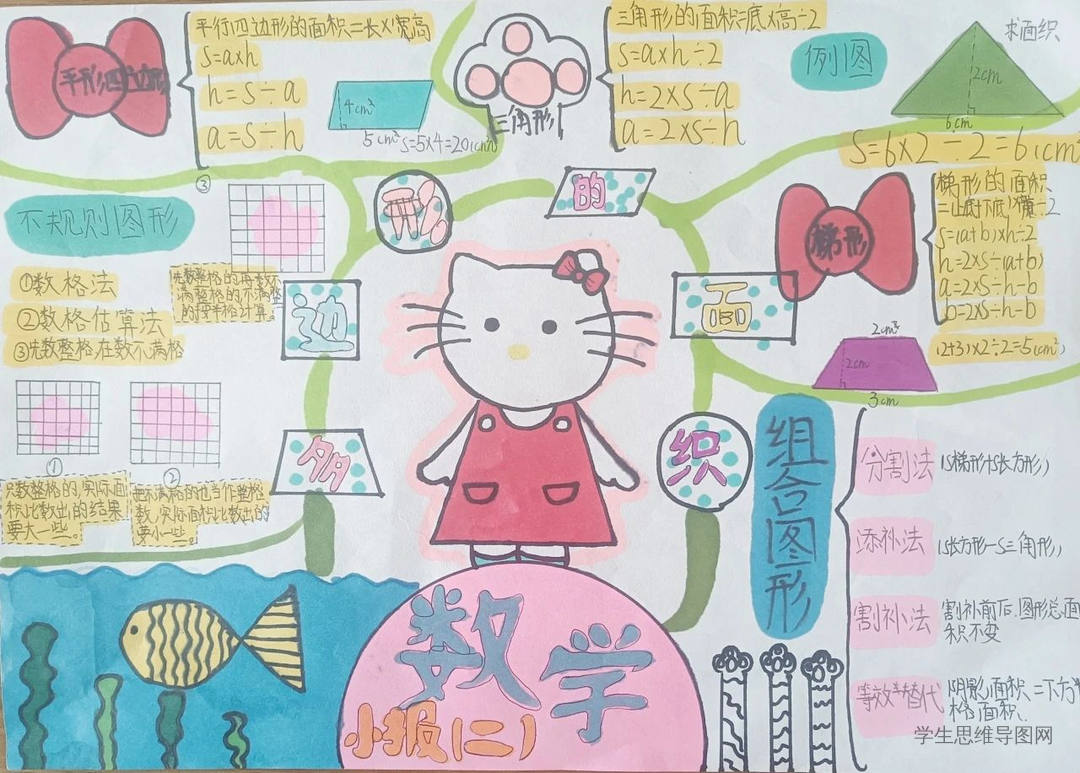 平行四边形
平行四边形的面积=长×宽高
S=a×h
h=S÷a
a=S÷h
4cm²
5cm²
S=5×4=20(cm²)
三角形
三角形的面积=底×高÷2
S=a×h÷2
h=2×S÷a
a=2×S÷h
例图
求面织
2cm
6cm
S=6×2÷2=6(cm²
不规则图形
①数格法
②数格估算法
③先数整格在数不满格
③
先数整格的,再数不
满整格的,不满整
的按半格计算。
①
②
只数整格的,实际面
积比数出的结果
要大一些。
把不满格的也当作整格
数,实际面积比数出的
要小一些。
多
边
形
的
面
织
梯形
梯形的面积
S=(a+b)×h÷2
h=2×S÷(a+b)
a=2×S÷h-b
b=2×S÷h-b
2cm²
2cm
3cm
(2+3)×2÷2=5(cm²)
组合图形
分割法 (S梯形+S长方形)
添补法 (S长方形-S三角形)
割补法 割补前后,图形总面
积不变
等效替代 阴影面积=下方
格面积.
数学
小报(二)
学生思维导图网